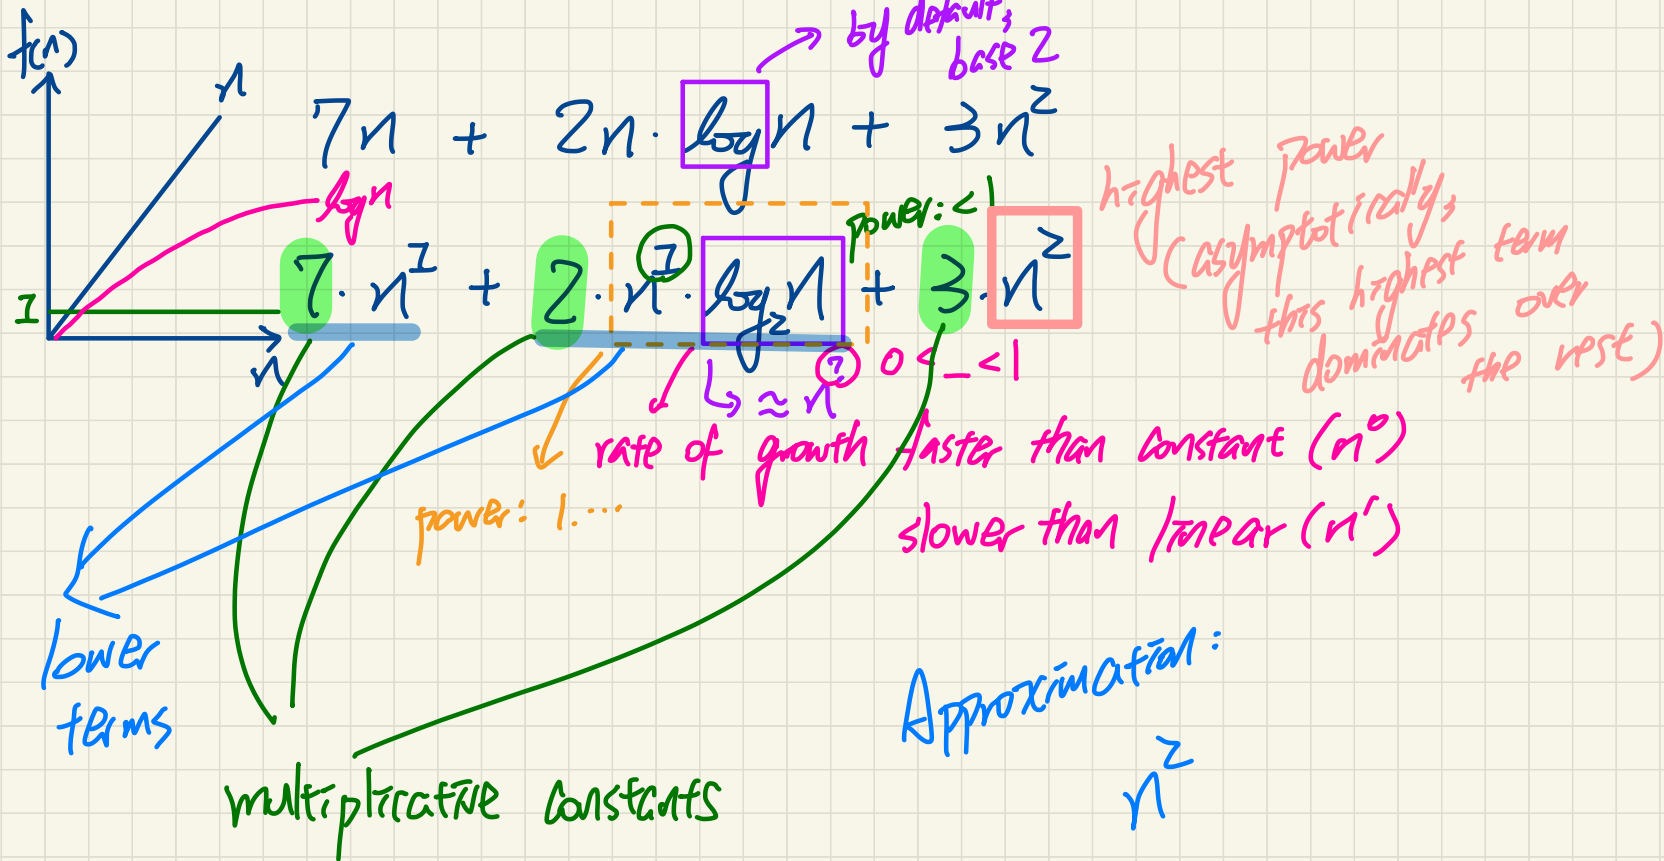 by default,
base 2
f(n)
n
7n + 2n · log n + 3n²
log n
power: < 1
7 · n¹ + 2 · n¹ · log₂ n + 3 · n²
1
n
highest power
(asymptotically,
this highest term
dominates over
the rest)
↳ ≈ n^?
0 < _ < 1
rate of growth faster than constant (n⁰)
slower than linear (n¹)
power: 1. ...
lower
terms
multiplicative constants
Approximation:
n²